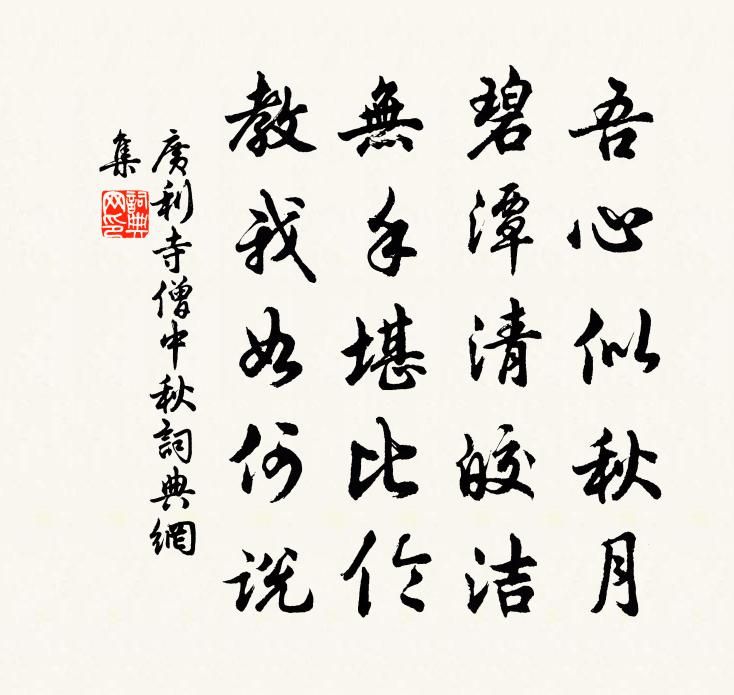 吾心似秋月
碧潭清皎洁
無手堪比伦
教我如何说
廣利寺僧中秋詞典網
集
詞典
网印